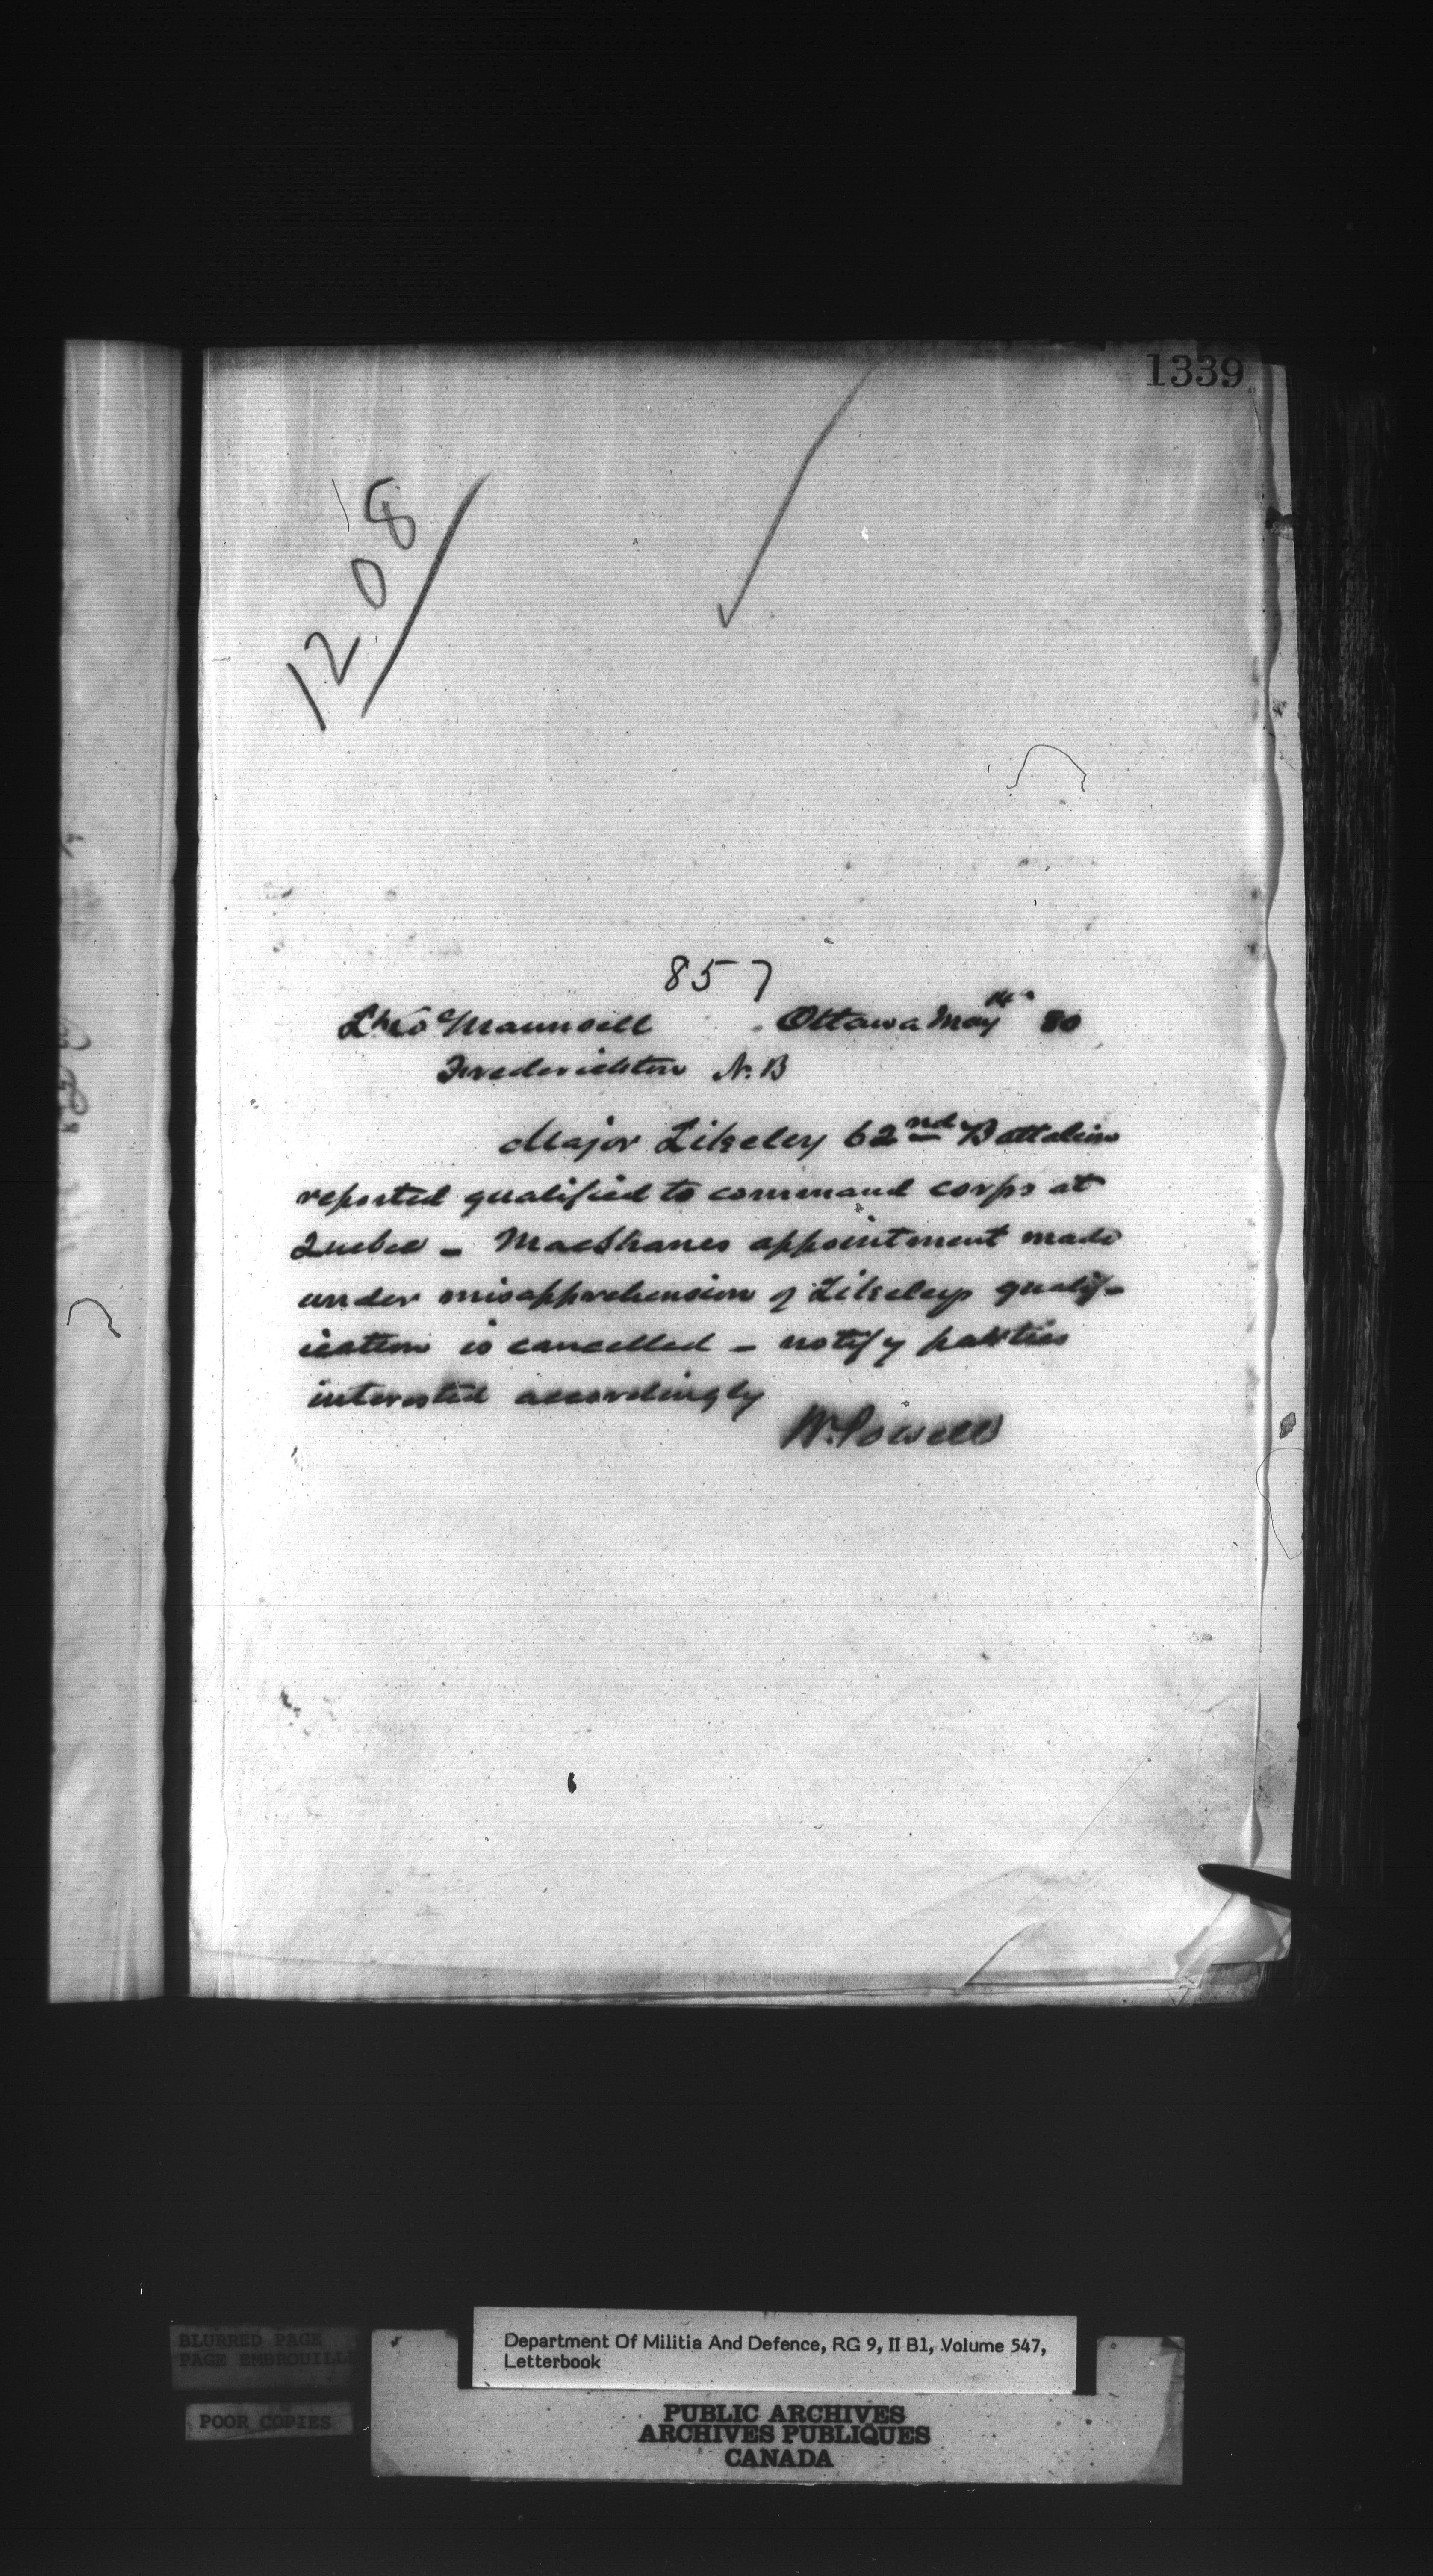 1339
1208
857
Lt Co Maunsell Ottawa May 14th 80
Fredericton N.B
Major Likeley 62nd Battalion
reported qualified to command corps at
Quebec - MacShanes appointment made
under misapprehension of Likeleys qualif-
ication is cancelled - notify parties
interested accordingly
W. Powell
BLURRED PAGE
PAGE EMBROUILL
POOR COPIES
Department Of Militia And Defence, RG 9, II B1, Volume 547,
Letterbook
PUBLIC ARCHIVES
ARCHIVES PUBLIQUES
CANADA